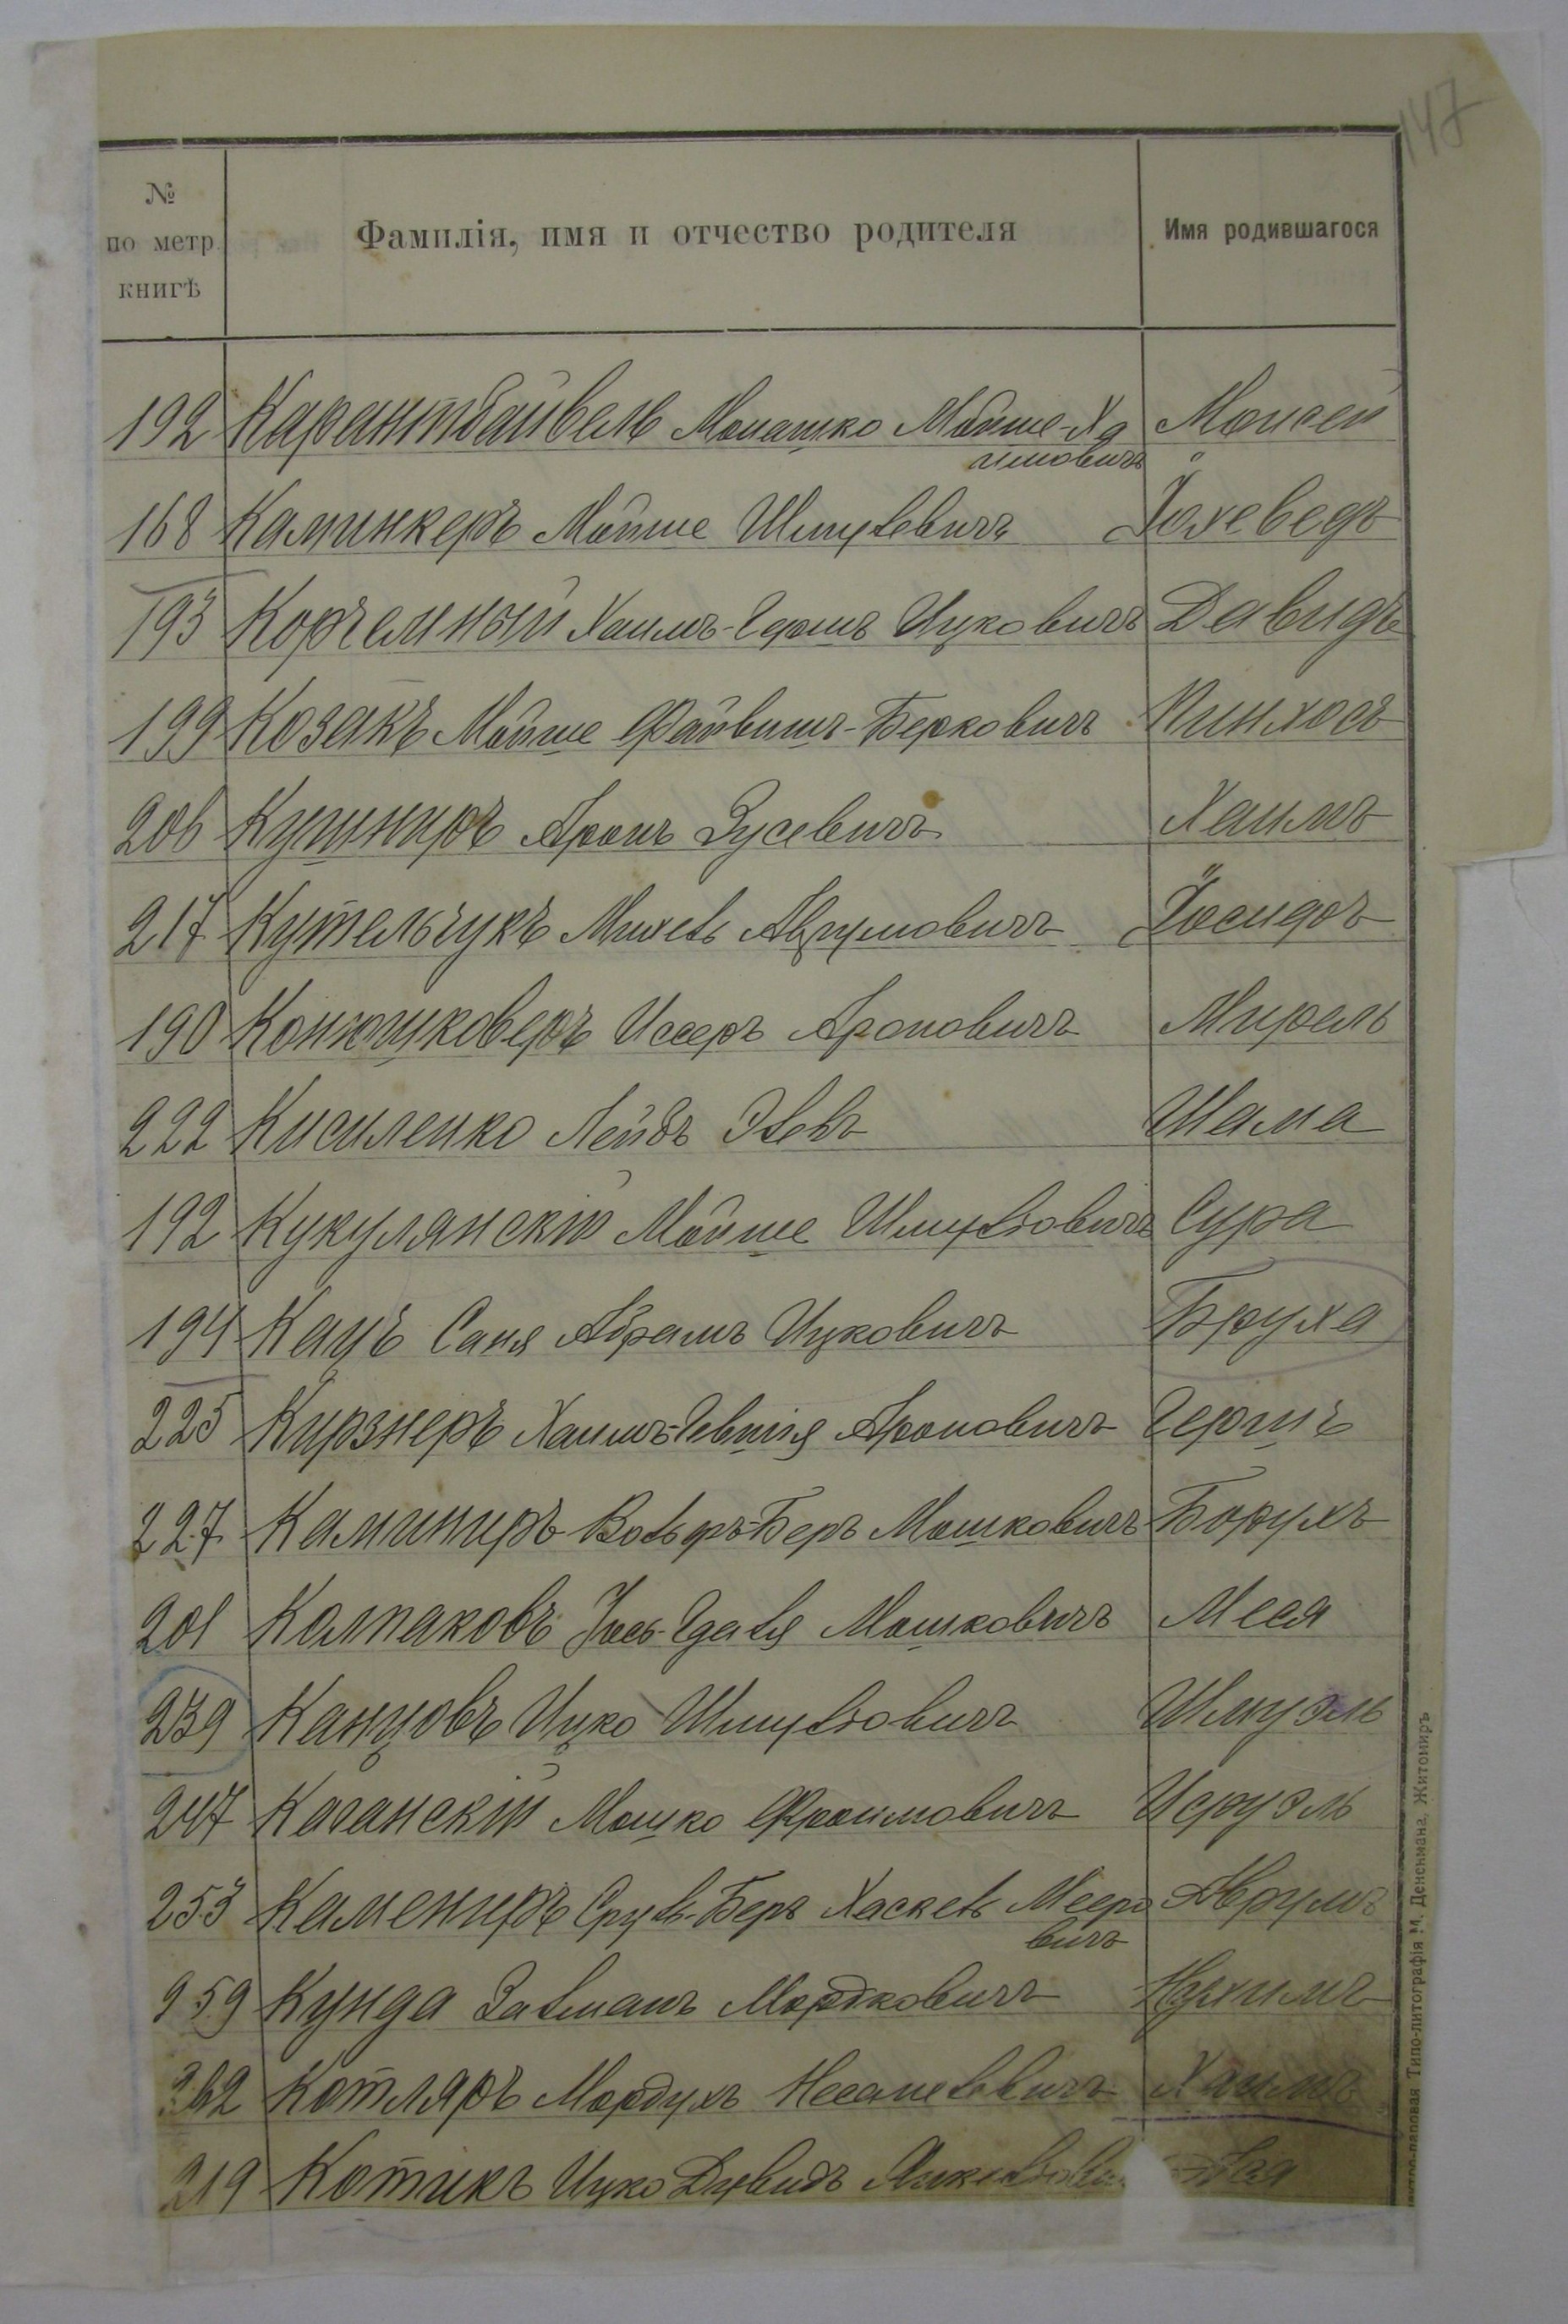 147
№
по метр.
книгѣ
Фамилія, имя и отчество родителя
Имя родившагося
192 Карантбайвель Монашко Мойше-Ха Моисей
имовичъ
168 Каминкеръ Мойше Шмулевичъ Іохеведъ
193 Корчемный Хаимъ-Гершъ Ицковичъ Давидъ
199 Козакъ Мойше Файвишъ-Берковичъ Пинхосъ
206 Кушниръ Аронъ Зусевичъ Хаимъ
217 Кутельчукъ Михель Аврумовичъ Іосифъ
190 Конюшковеръ Иссеръ Ароновичъ Мирель
222 Кисиленко Лейбъ Элевъ Шама
192 Кукулянскій Мойше Шмулёвичъ Сура
194 Кацъ Саня Абрамъ Ицковичъ Бруха
225 Кирзнеръ Хаимъ-Гевшія Ароновичъ Гершъ
227 Каминиръ Вольфъ-Беръ Мошковичъ Борухъ
201 Колпаковъ Іось-Гдаля Мошковичъ Меся
239 Канцовъ Ицко Шмулёвичъ Шмуэль
247 Каганскій Мошко Фроимовичъ Исруэль
253 Камениръ Сруль-Беръ Хаскель Мееро Аврумъ
вичъ
259 Кунда Залманъ Мордковичъ Нухимъ
262 Котляръ Мордухъ Несанелевичъ Хаимъ
219 Котикъ Ицко Дувидъ
Типо-литографія М. Денемана, Житомиръ